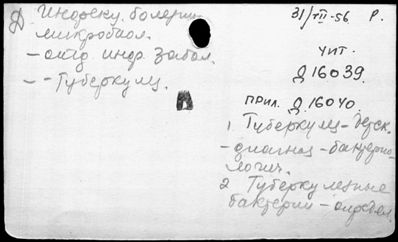 Д Инфекц. болезни
микробиол.
- отд. инф. забол.
- - Туберкулез.
31/VII-56 Р.
ЧИТ.
Д16039.
ПРИЛ. Д.16040.
1. Туберкулез - детск.
- диагноз - бактерио-
логич.
2 Туберкулезные
бактерии - определ.